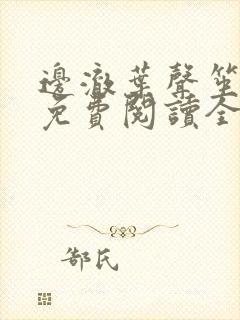 邊澈葉聲笙
免費閱讀全
郜氏